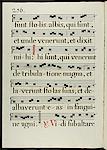 236.
sunt stolis albis, qui sunt,
et unde venerunt, et dixit
mihi: hi sunt, qui venerunt
de tribulatione magna, et
laverunt stolas suas, et de-
albaverunt eas in sangui-
ne agni. V. Vidi sub altare